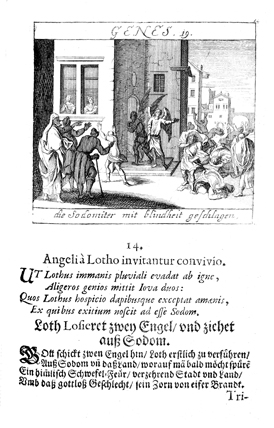 GENES. 19.
die Sodomiter mit blindheit geschlagen.
14.
Angeli à Lotho invitantur convivio.
UT Lothus immanis pluviali evadat ab igne,
Aligeros genios mittit Iova duos:
Quos Lothus hospicio dapibusque exceptat amanis,
Ex quibus exitium noscit ad esse Sodom.
Loth Losieret zwey Engel/ und zihet
auß Sodom.
GOtt schickt zwen Engel hin/ Loth erstlich zu verführen/
Auß Sodom und daß Land/ worauf mã bald möcht spürẽ
Ein hiũlisch Schwefel-Feur/ verzehrend Stadt und Land/
Umb daß gottloß Geschlecht/ sein Zorn von eifer Brandt.
Tri-